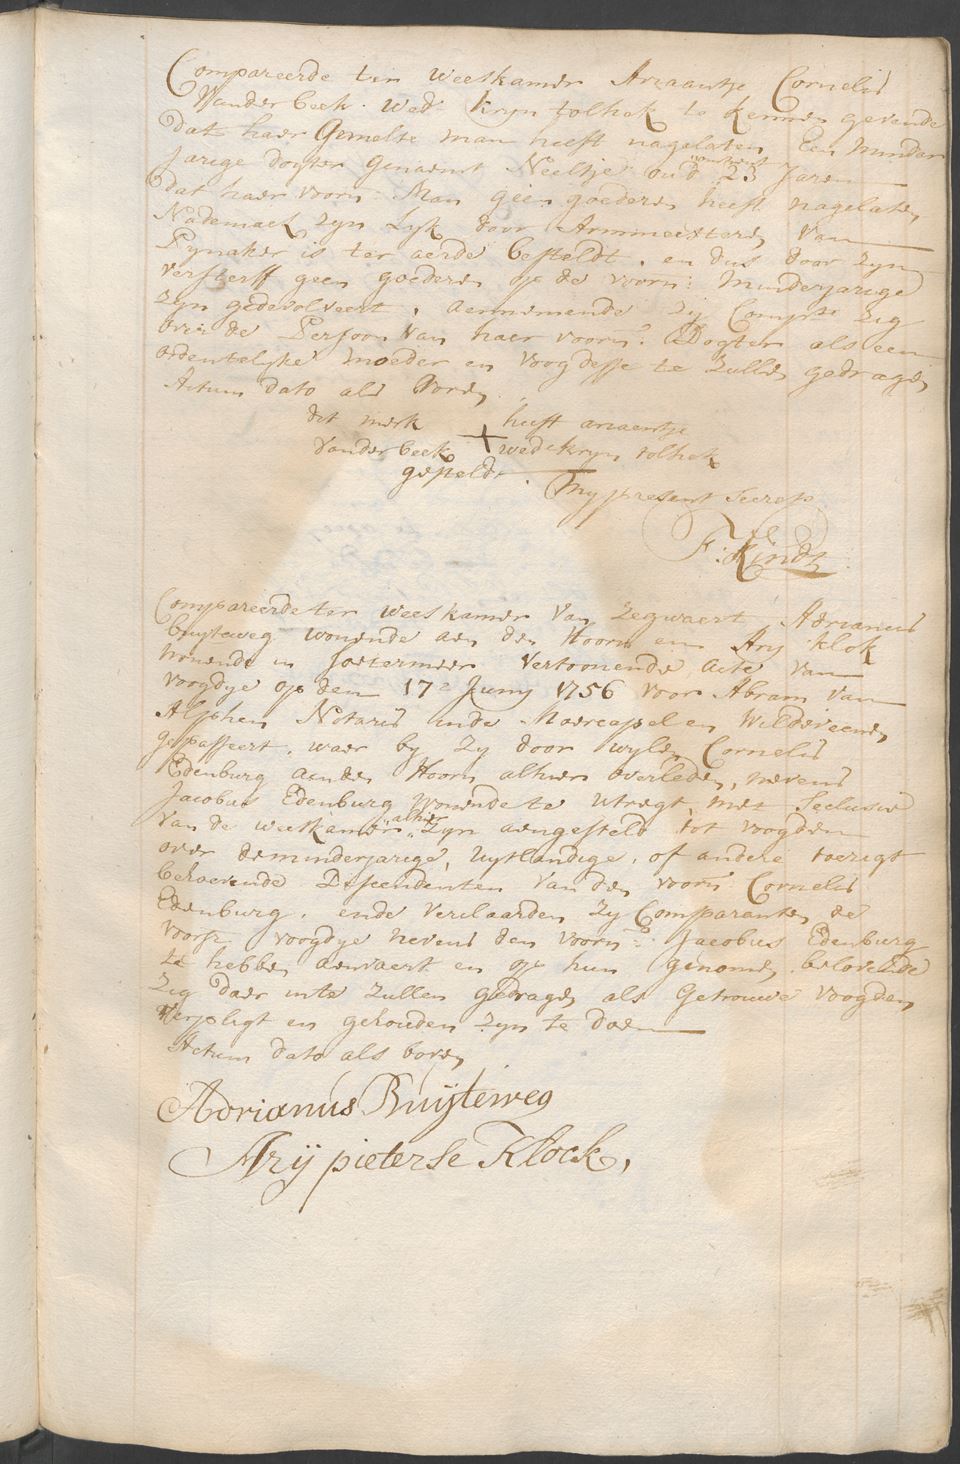 Compareerde ter Weeskamer Ariaantje Cornelis
Vander Beek. Wed.e Kryn tolhek te kennen gevende
dat haer Gemelte man heeft nagelaten Een minder
Jarige dogter Genaemt Neeltje oud omtrent 23 Jaren
dat haer voorn: Man geen goederen heeft nagelaten
Nademael zyn Lyk door Armmeesteren van
Pynaker is ter aerde besteldt, en dus door zyn
versterff geen goederen op de voorn: minderjarige
zyn gedevolveert, aennemende zy Compte. zig
over de Persoon van haer voorn.e Dogter als een
ordentelyke moeder en voogdesse te zullen gedragen
Actum dato als Voren.
dit merk + heeft ariaentje
Vander beek wed.e kryn tolhek
gestelt.
My present Secrets.
F: Kindt
Compareerde ter weeskamer van Zegwaert Adrianus
buyteweg wonende aen den Hoorn en Ary klok
wonende in Soetermeer Vertoonende acte van
voogdye op den 17e Juny 1756 voor Abram van
Alphen Notaris inde Moercapel en Wildeveenen
gepasseert, waer by Zy door wylen Cornelis
Edenburg aenden Hoorn alhier overleden, nevens
Jacobus Edenburg wonende te Utregt, met Seclusie
van de weeskamer alhier Zyn aengesteld tot voogden
over de minderjarige, uytlandige, of andere toezigt
behoevende Descendenten van den voorn: Cornelis
Edenburg. ende verclaarden Zy Comparanten de
voorsz. voogdye nevens den voorn.e Jacobus Edenburg
te hebben aenvaert en op hun genomen, belovende
zig daer inte zullen gedragen als Getrouwe voogden
verpligt en gehouden zyn te doen
Actum dato als boven
Adrianus Buijteweg
Arij pieterse Klock,